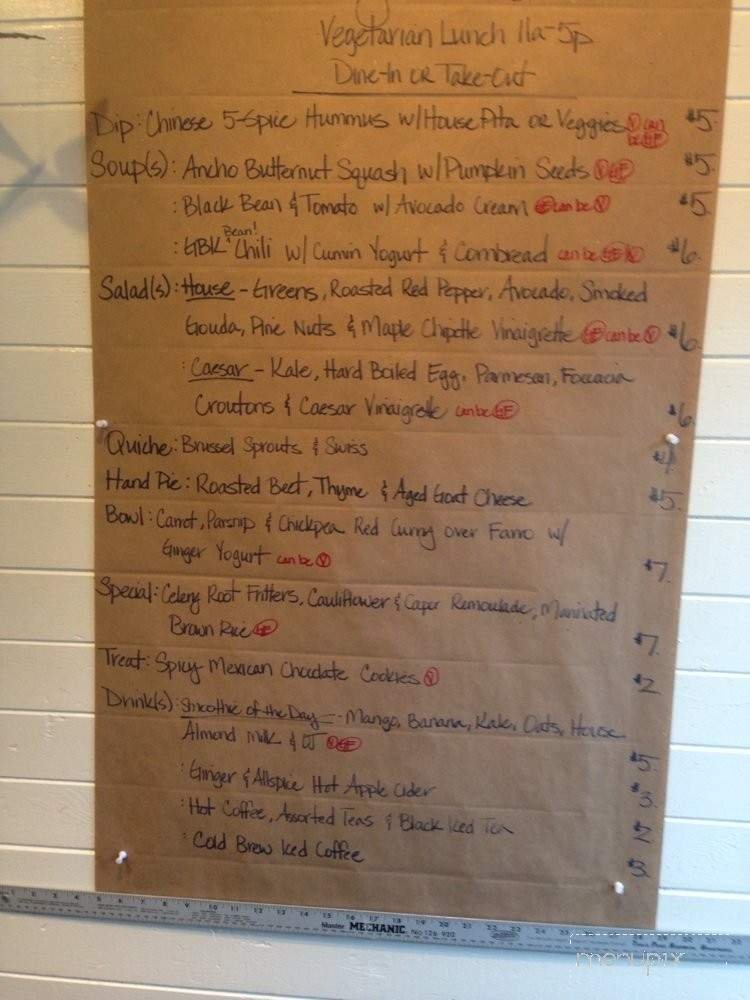 Vegetarian Lunch 11a-5p
Dine-In or Take-Out
Dip: Chinese 5-Spice Hummus w/House Pita or Veggies (V) can be (GF) $5.
Soup(s): Ancho Butternut Squash w/Pumpkin Seeds (V) (GF) $5.
: Black Bean & Tomato w/ Avocado Cream (GF) can be (V) $5.
: GBK Bean! Chili w/ Cumin Yogurt & Cornbread can be (GF) (V) $6.
Salad(s): House - Greens, Roasted Red Pepper, Avocado, Smoked
Gouda, Pine Nuts & Maple Chipotle Vinaigrette (GF) can be (V) $6.
: Caesar - Kale, Hard Boiled Egg, Parmesan, Foccacia
Croutons & Caesar Vinaigrette can be (GF) $6.
Quiche: Brussel Sprouts & Swiss $4.
Hand Pie: Roasted Beet, Thyme & Aged Goat Cheese $5.
Bowl: Carrot, Parsnip & Chickpea Red Curry over Farro w/
Ginger Yogurt can be (V) $7.
Special: Celery Root Fritters, Cauliflower & Caper Remoulade, Marinated
Brown Rice (GF) $7.
Treat: Spicy Mexican Chocolate Cookies (V) $2
Drink(s): Smoothie of the Day - Mango, Banana, Kale, Oats, House
Almond Milk & OJ (V) (GF) $5.
: Ginger & Allspice Hot Apple Cider $3.
: Hot Coffee, Assorted Teas & Black Iced Tea $2
: Cold Brew Iced Coffee $3.
Master MECHANIC No 126 920
menupix